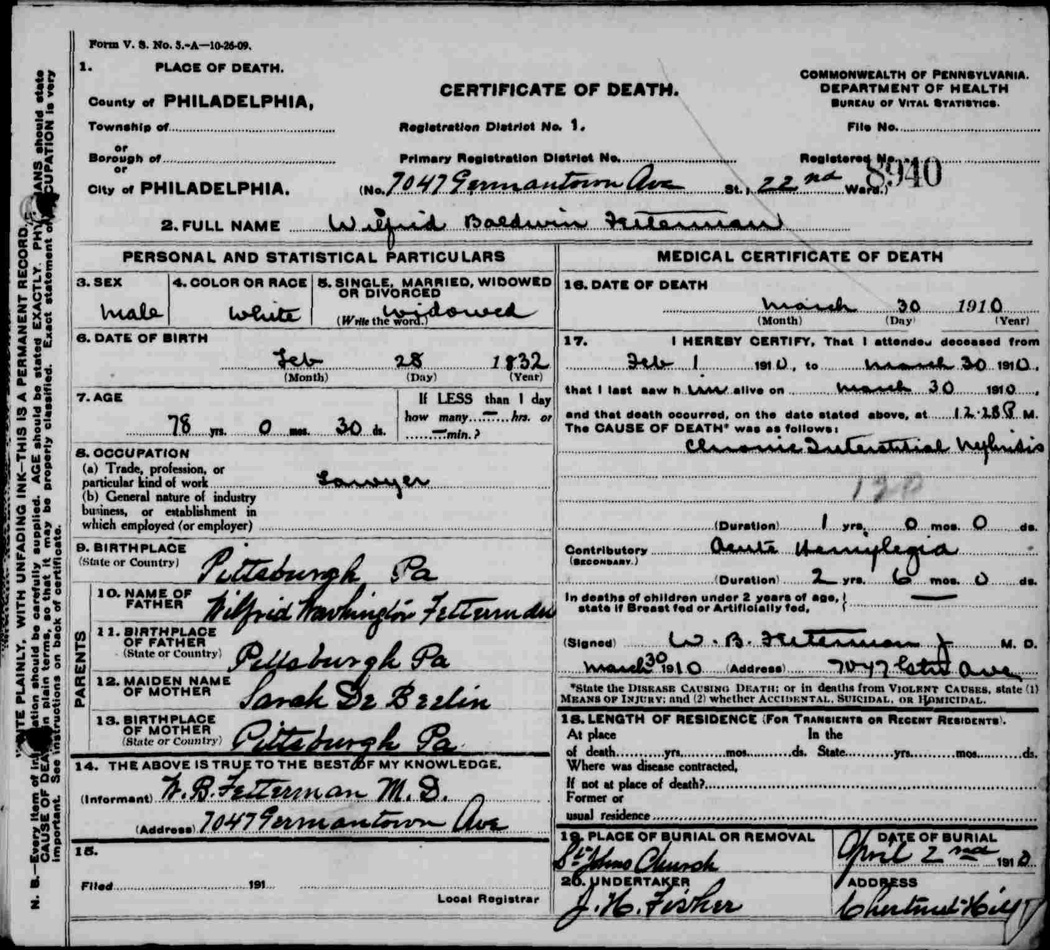 Form V. S. No. 5.-A—10-26-09.
1. PLACE OF DEATH.
County of PHILADELPHIA,
Township of
or
Borough of
or
City of PHILADELPHIA.
CERTIFICATE OF DEATH.
Registration District No. 1.
Primary Registration District No.
(No. 7047 Germantown Ave St., 22nd Ward.)
COMMONWEALTH OF PENNSYLVANIA.
DEPARTMENT OF HEALTH
BUREAU OF VITAL STATISTICS.
File No.
Registered No.
8940
2. FULL NAME Wilfrid Baldwin Fetterman
PERSONAL AND STATISTICAL PARTICULARS
3. SEX
Male
4. COLOR OR RACE
White
5. SINGLE, MARRIED, WIDOWED
OR DIVORCED
(Write the word.) Widowed
6. DATE OF BIRTH
Feb 28 1832
(Month) (Day) (Year)
7. AGE
78 yrs. 0 mos. 30 ds.
If LESS than 1 day
how many — hrs. or
— min.?
8. OCCUPATION
(a) Trade, profession, or
particular kind of work Lawyer
(b) General nature of industry
business, or establishment in
which employed (or employer)
9. BIRTHPLACE
(State or Country) Pittsburgh Pa
PARENTS
10. NAME OF
FATHER Wilfrid Washington Fetterman
11. BIRTHPLACE
OF FATHER
(State or Country) Pittsburgh Pa
12. MAIDEN NAME
OF MOTHER Sarah De Berlin
13. BIRTHPLACE
OF MOTHER
(State or Country) Pittsburgh Pa.
14. THE ABOVE IS TRUE TO THE BEST OF MY KNOWLEDGE.
(Informant) W. B. Fetterman M. D.
(Address) 7047 Germantown Ave
15.
Filed 191
Local Registrar
MEDICAL CERTIFICATE OF DEATH
16. DATE OF DEATH
March 30 1910
(Month) (Day) (Year)
17. I HEREBY CERTIFY, That I attended deceased from
Feb 1 1910, to March 30 1910,
that I last saw him alive on March 30 1910,
and that death occurred, on the date stated above, at 12.28 P M.
The CAUSE OF DEATH* was as follows:
Chronic Interstitial Nephritis
120
(Duration) 1 yrs. 0 mos. 0 ds.
Contributory Acute Hemiplegia
(SECONDARY.)
(Duration) 2 yrs 6 mos. 0 ds.
In deaths of children under 2 years of age,
state if Breast fed or Artificially fed, —
(Signed) W. B. Fetterman Jr M. D.
March 30 1910 (Address) 7047 Gtn Ave
*State the DISEASE CAUSING DEATH; or in deaths from VIOLENT CAUSES, state (1)
MEANS OF INJURY; and (2) whether ACCIDENTAL, SUICIDAL, OR HOMICIDAL.
18. LENGTH OF RESIDENCE (FOR TRANSIENTS OR RECENT RESIDENTS).
At place In the
of death yrs. mos. ds. State yrs. mos. ds.
Where was disease contracted,
If not at place of death?
Former or
usual residence
19. PLACE OF BURIAL OR REMOVAL
St Johns Church
DATE OF BURIAL
April 2nd 1910
20. UNDERTAKER
J. H. Fisher
ADDRESS
Chestnut Hill
N. B.—Every item of information should be carefully supplied. AGE should be stated EXACTLY. PHYSICIANS should state
CAUSE OF DEATH in plain terms, so that it may be properly classified. Exact statement of OCCUPATION is very
important. See instructions on back of certificate.
WRITE PLAINLY, WITH UNFADING INK—THIS IS A PERMANENT RECORD.